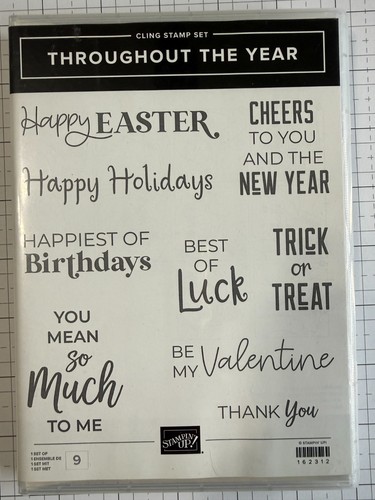 CLING STAMP SET
THROUGHOUT THE YEAR
Happy EASTER
CHEERS
TO YOU
AND THE
NEW YEAR
Happy Holidays
HAPPIEST OF
Birthdays
BEST
OF
Luck
TRICK
or
TREAT
YOU
MEAN
so
Much
TO ME
BE
MY Valentine
THANK You
1 SET OF
1 ENSEMBLE DE
1 SET MIT
1 SET MET
9
STAMPIN' UP!
© STAMPIN' UP!
162312